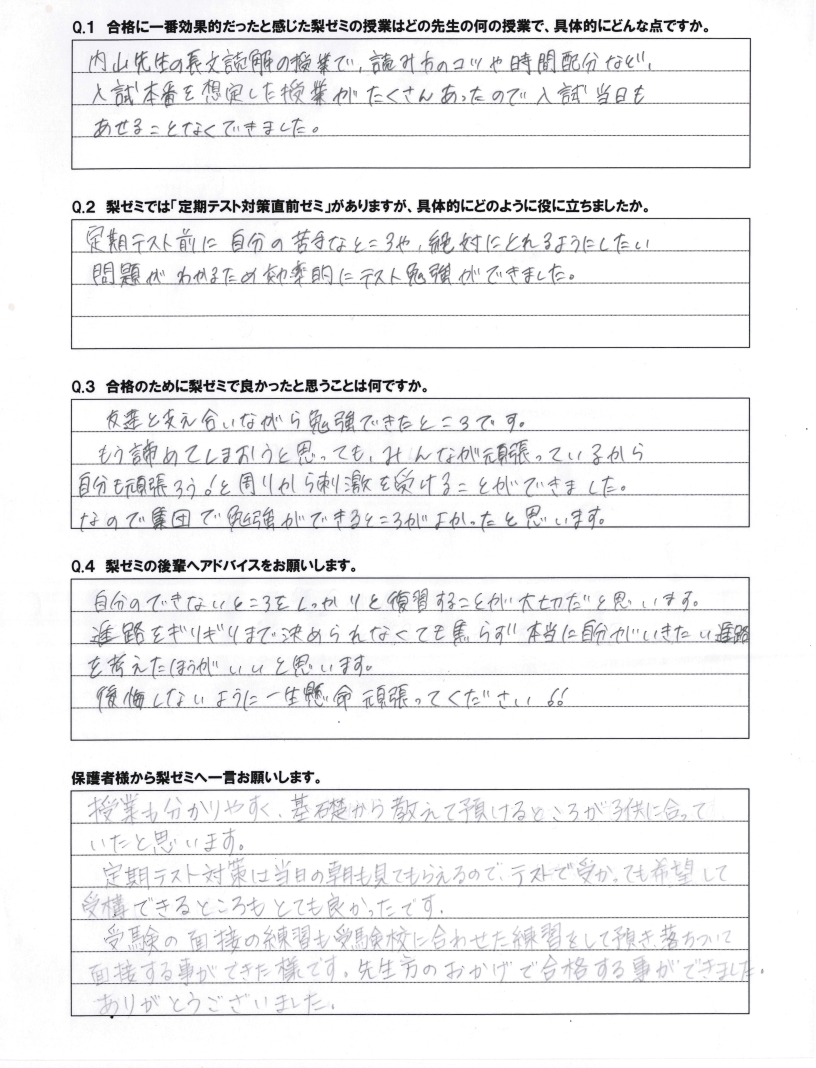 Q.1 合格に一番効果的だったと感じた梨ゼミの授業はどの先生の何の授業で、具体的にどんな点ですか。
内山先生の長文読解の授業で、読み方のコツや時間配分など、
入試本番を想定した授業がたくさんあったので入試当日も
あせることなくできました。
Q.2 梨ゼミでは「定期テスト対策直前ゼミ」がありますが、具体的にどのように役に立ちましたか。
定期テスト前に自分の苦手なところや、絶対にとれるようにしたい
問題がわかるため効率的にテスト勉強ができました。
Q.3 合格のために梨ゼミで良かったと思うことは何ですか。
友達と支え合いながら勉強できたところです。
もう諦めてしまおうと思っても、みんなが頑張っているから
自分も頑張ろう!と周りから刺激を受けることができました。
なので集団で勉強ができるところがよかったと思います。
Q.4 梨ゼミの後輩へアドバイスをお願いします。
自分のできないところをしっかりと復習することが大切だと思います。
進路をギリギリまで決められなくても焦らず本当に自分がいきたい進路
を考えたほうがいいと思います。
後悔しないように一生懸命頑張ってください!!
保護者様から梨ゼミへ一言お願いします。
授業も分かりやすく、基礎から教えて頂けるところが子供に合って
いたと思います。
定期テスト対策は当日の朝も見てもらえるので、テストで受かっても希望して
受講できるところもとても良かったです。
受験の面接の練習も受験校に合わせた練習をして頂き、落ちついて
面接する事ができた様です。先生方のおかげで合格する事ができました。
ありがとうございました。